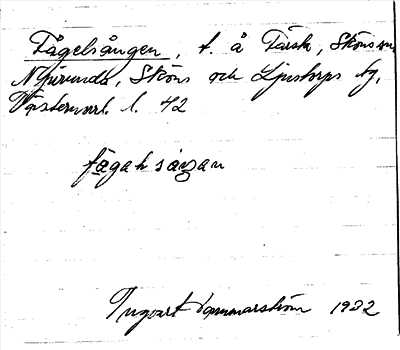 Fågelsången, t. å Färsta, Sköns sn,
Njurunda, Sköns och Ljustorps tg,
Västernorrl. l. 42
fågahsåŋan
Ingvart Hammarström 1932